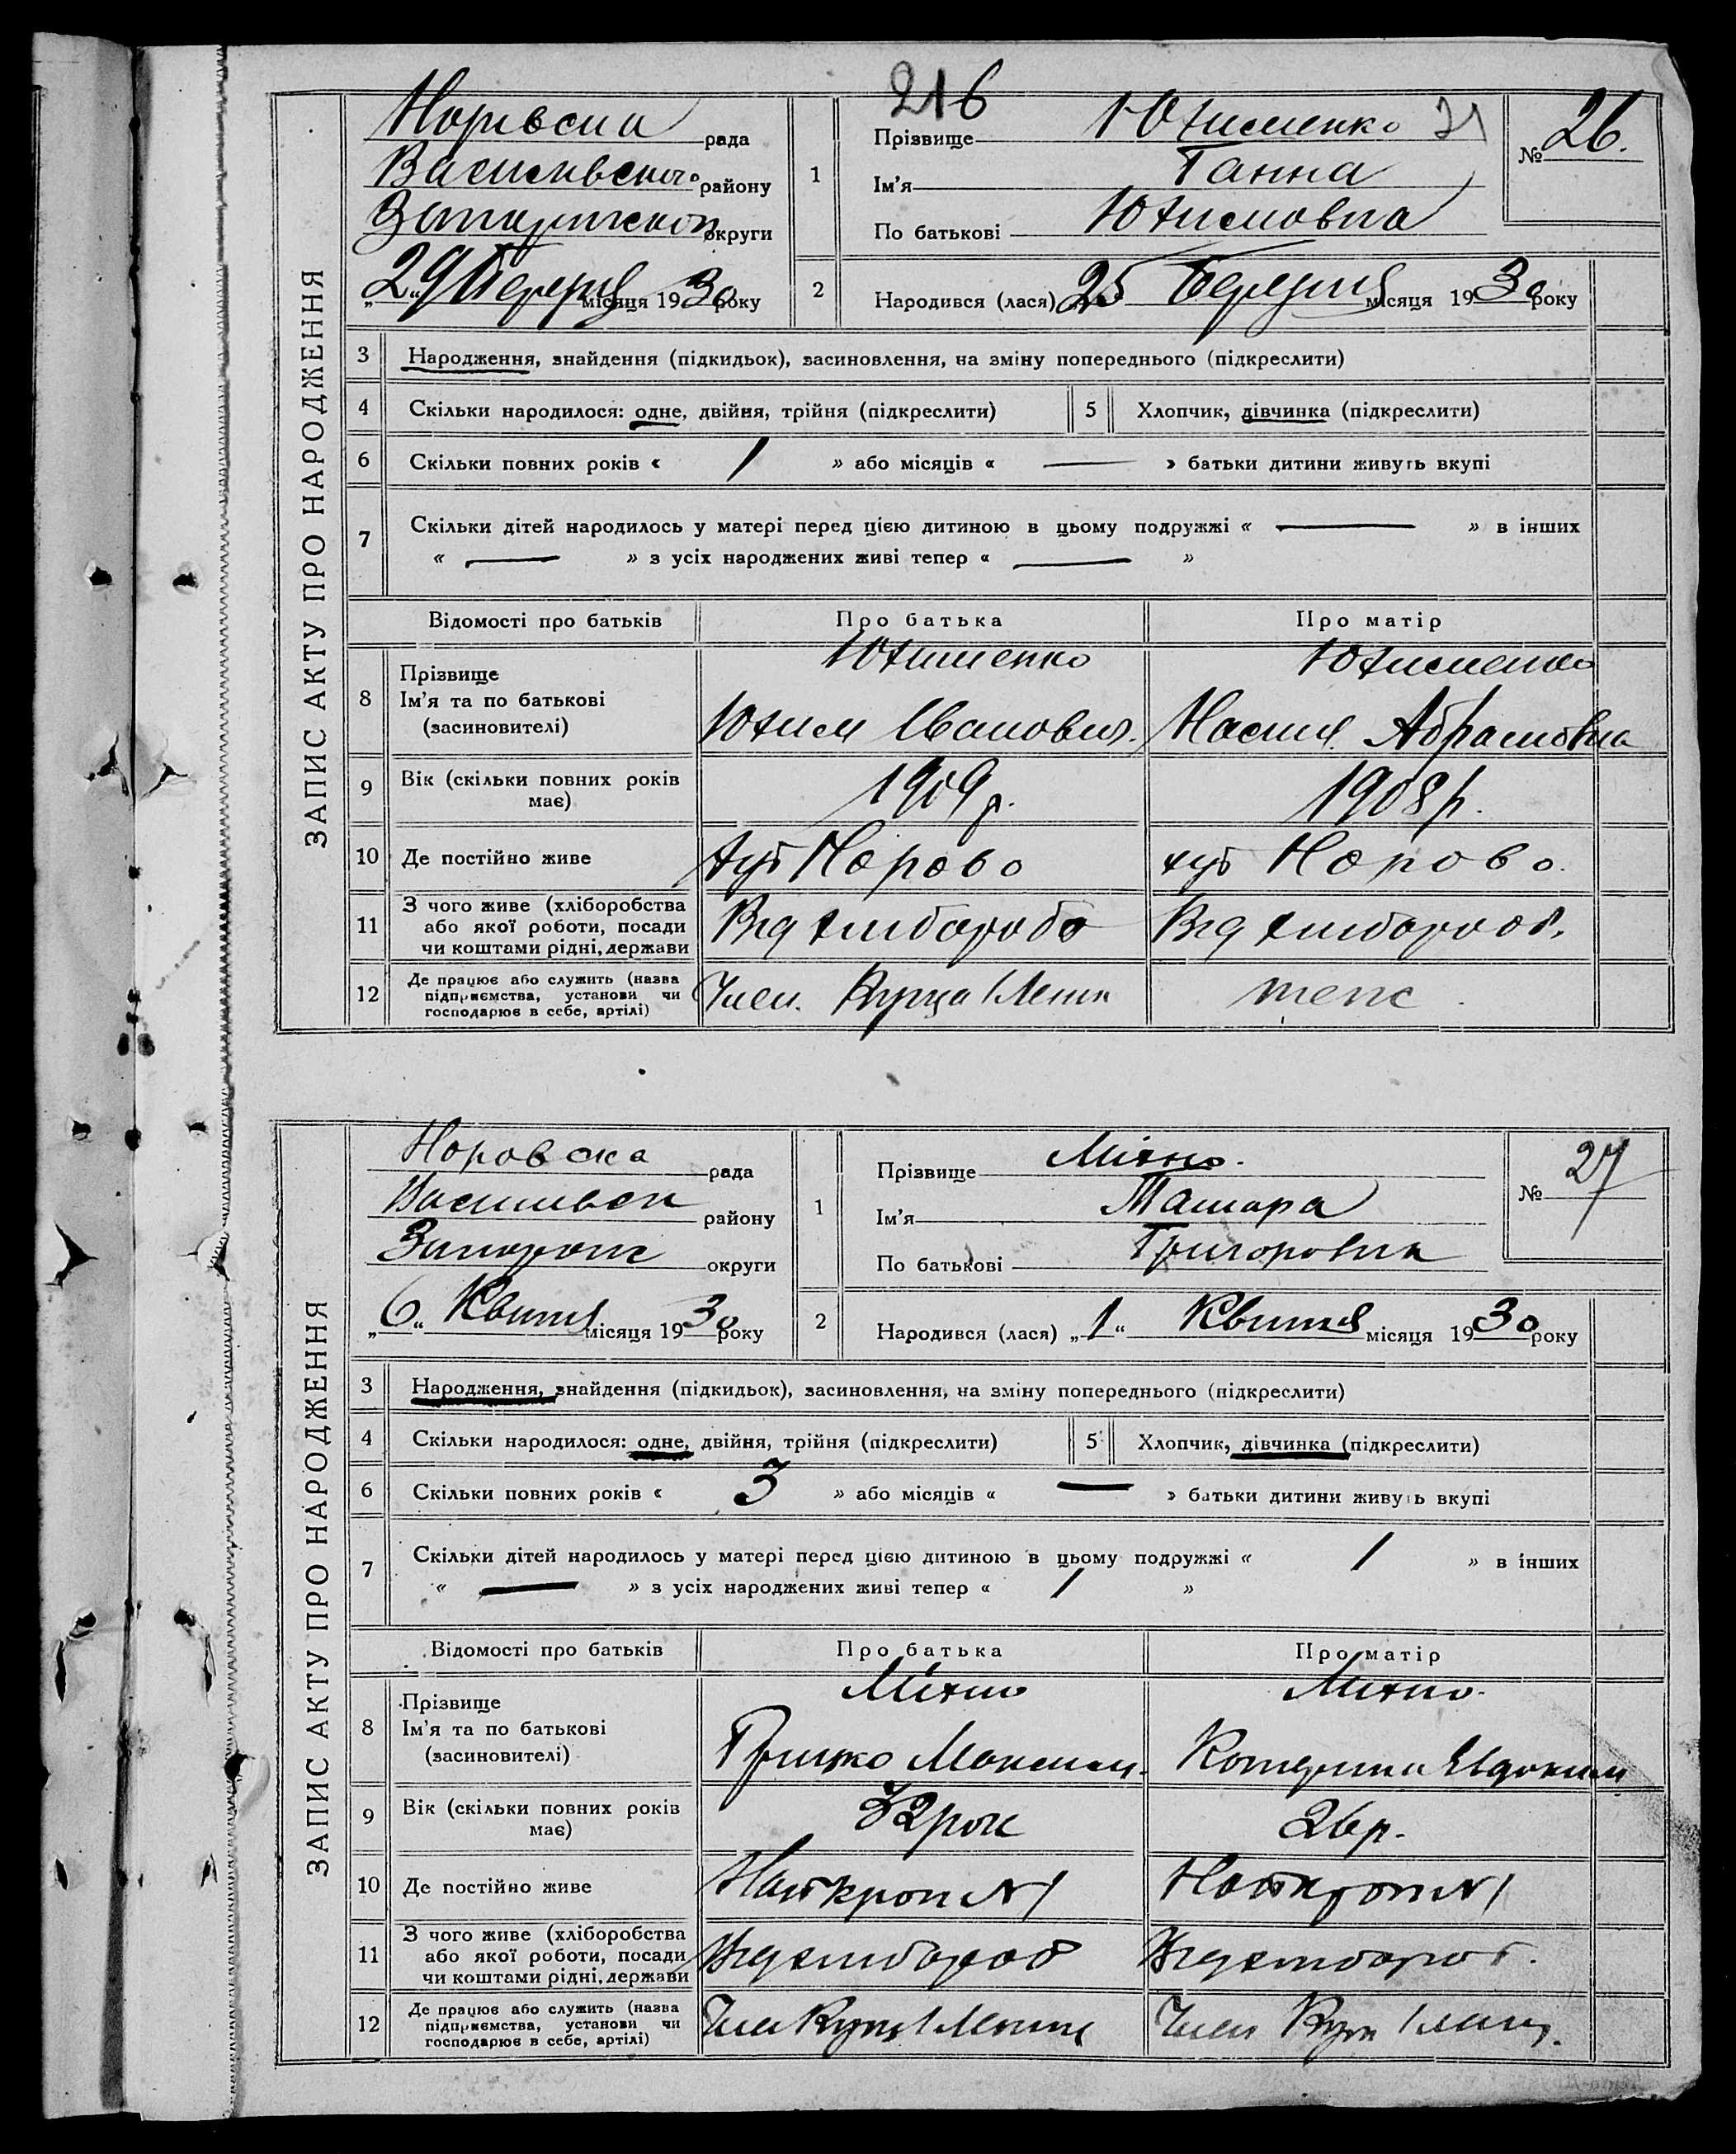 216
ЗАПИС АКТУ ПРО НАРОДЖЕННЯ
рада
Васильвского району
округи
„29“ місяця 1930 року
1
Прізвище Юхименко 21
Ім'я Ганна
По батькові Юхимовна
№ 26.
2
Народився (лася) 25 Березня місяця 1930 року
3 Народження, знайдення (підкидьок), засиновлення, на зміну попереднього (підкреслити)
4 Скільки народилося: одне, двійня, трійня (підкреслити) 5 Хлопчик, дівчинка (підкреслити)
6 Скільки повних років « 1 » або місяців « — » батьки дитини живуть вкупі
7 Скільки дітей народилось у матері перед цією дитиною в цьому подружжі « — » в інших
« — » з усіх народжених живі тепер « — »
Відомості про батьків Про батька Про матір
8 Прізвище Ім'я та по батькові (засиновителі)
Юхименко Юхименко
Юхим Іванович. Настя Абрамовна
9 Вік (скільки повних років має) 1909 р. 1908 р.
10 Де постійно живе хут Норово хут Норово.
11 З чого живе (хліборобства або якої роботи, посади чи коштами рідні, держави Від хлибороб Від хлибороб.
12 Де працює або служить (назва підприємства, установи чи господарює в себе, артілі) Член теж
ЗАПИС АКТУ ПРО НАРОДЖЕННЯ
Норовска рада
Васильвск району
округи
„6“ Квитня місяця 1930 року
1
Прізвище Міхно.
Ім'я Тамара
По батькові Григоровна
№ 27
2
Народився (лася) „1“ Квитня місяця 1930 року
3 Народження, знайдення (підкидьок), засиновлення, на зміну попереднього (підкреслити)
4 Скільки народилося: одне, двійня, трійня (підкреслити) 5 Хлопчик, дівчинка (підкреслити)
6 Скільки повних років « 3 » або місяців « — » батьки дитини живуть вкупі
7 Скільки дітей народилось у матері перед цією дитиною в цьому подружжі « 1 » в інших
« — » з усіх народжених живі тепер « 1 »
Відомості про батьків Про батька Про матір
8 Прізвище Ім'я та по батькові (засиновителі)
Міхно Міхно.
Грицко Максим. Катерина Евдоким
9 Вік (скільки повних років має) 32 рок 26 р.
10 Де постійно живе N1 N1
11 З чого живе (хліборобства або якої роботи, посади чи коштами рідні, держави Від хлибороб Від хлибороб.
12 Де працює або служить (назва підприємства, установи чи господарює в себе, артілі) Член Член